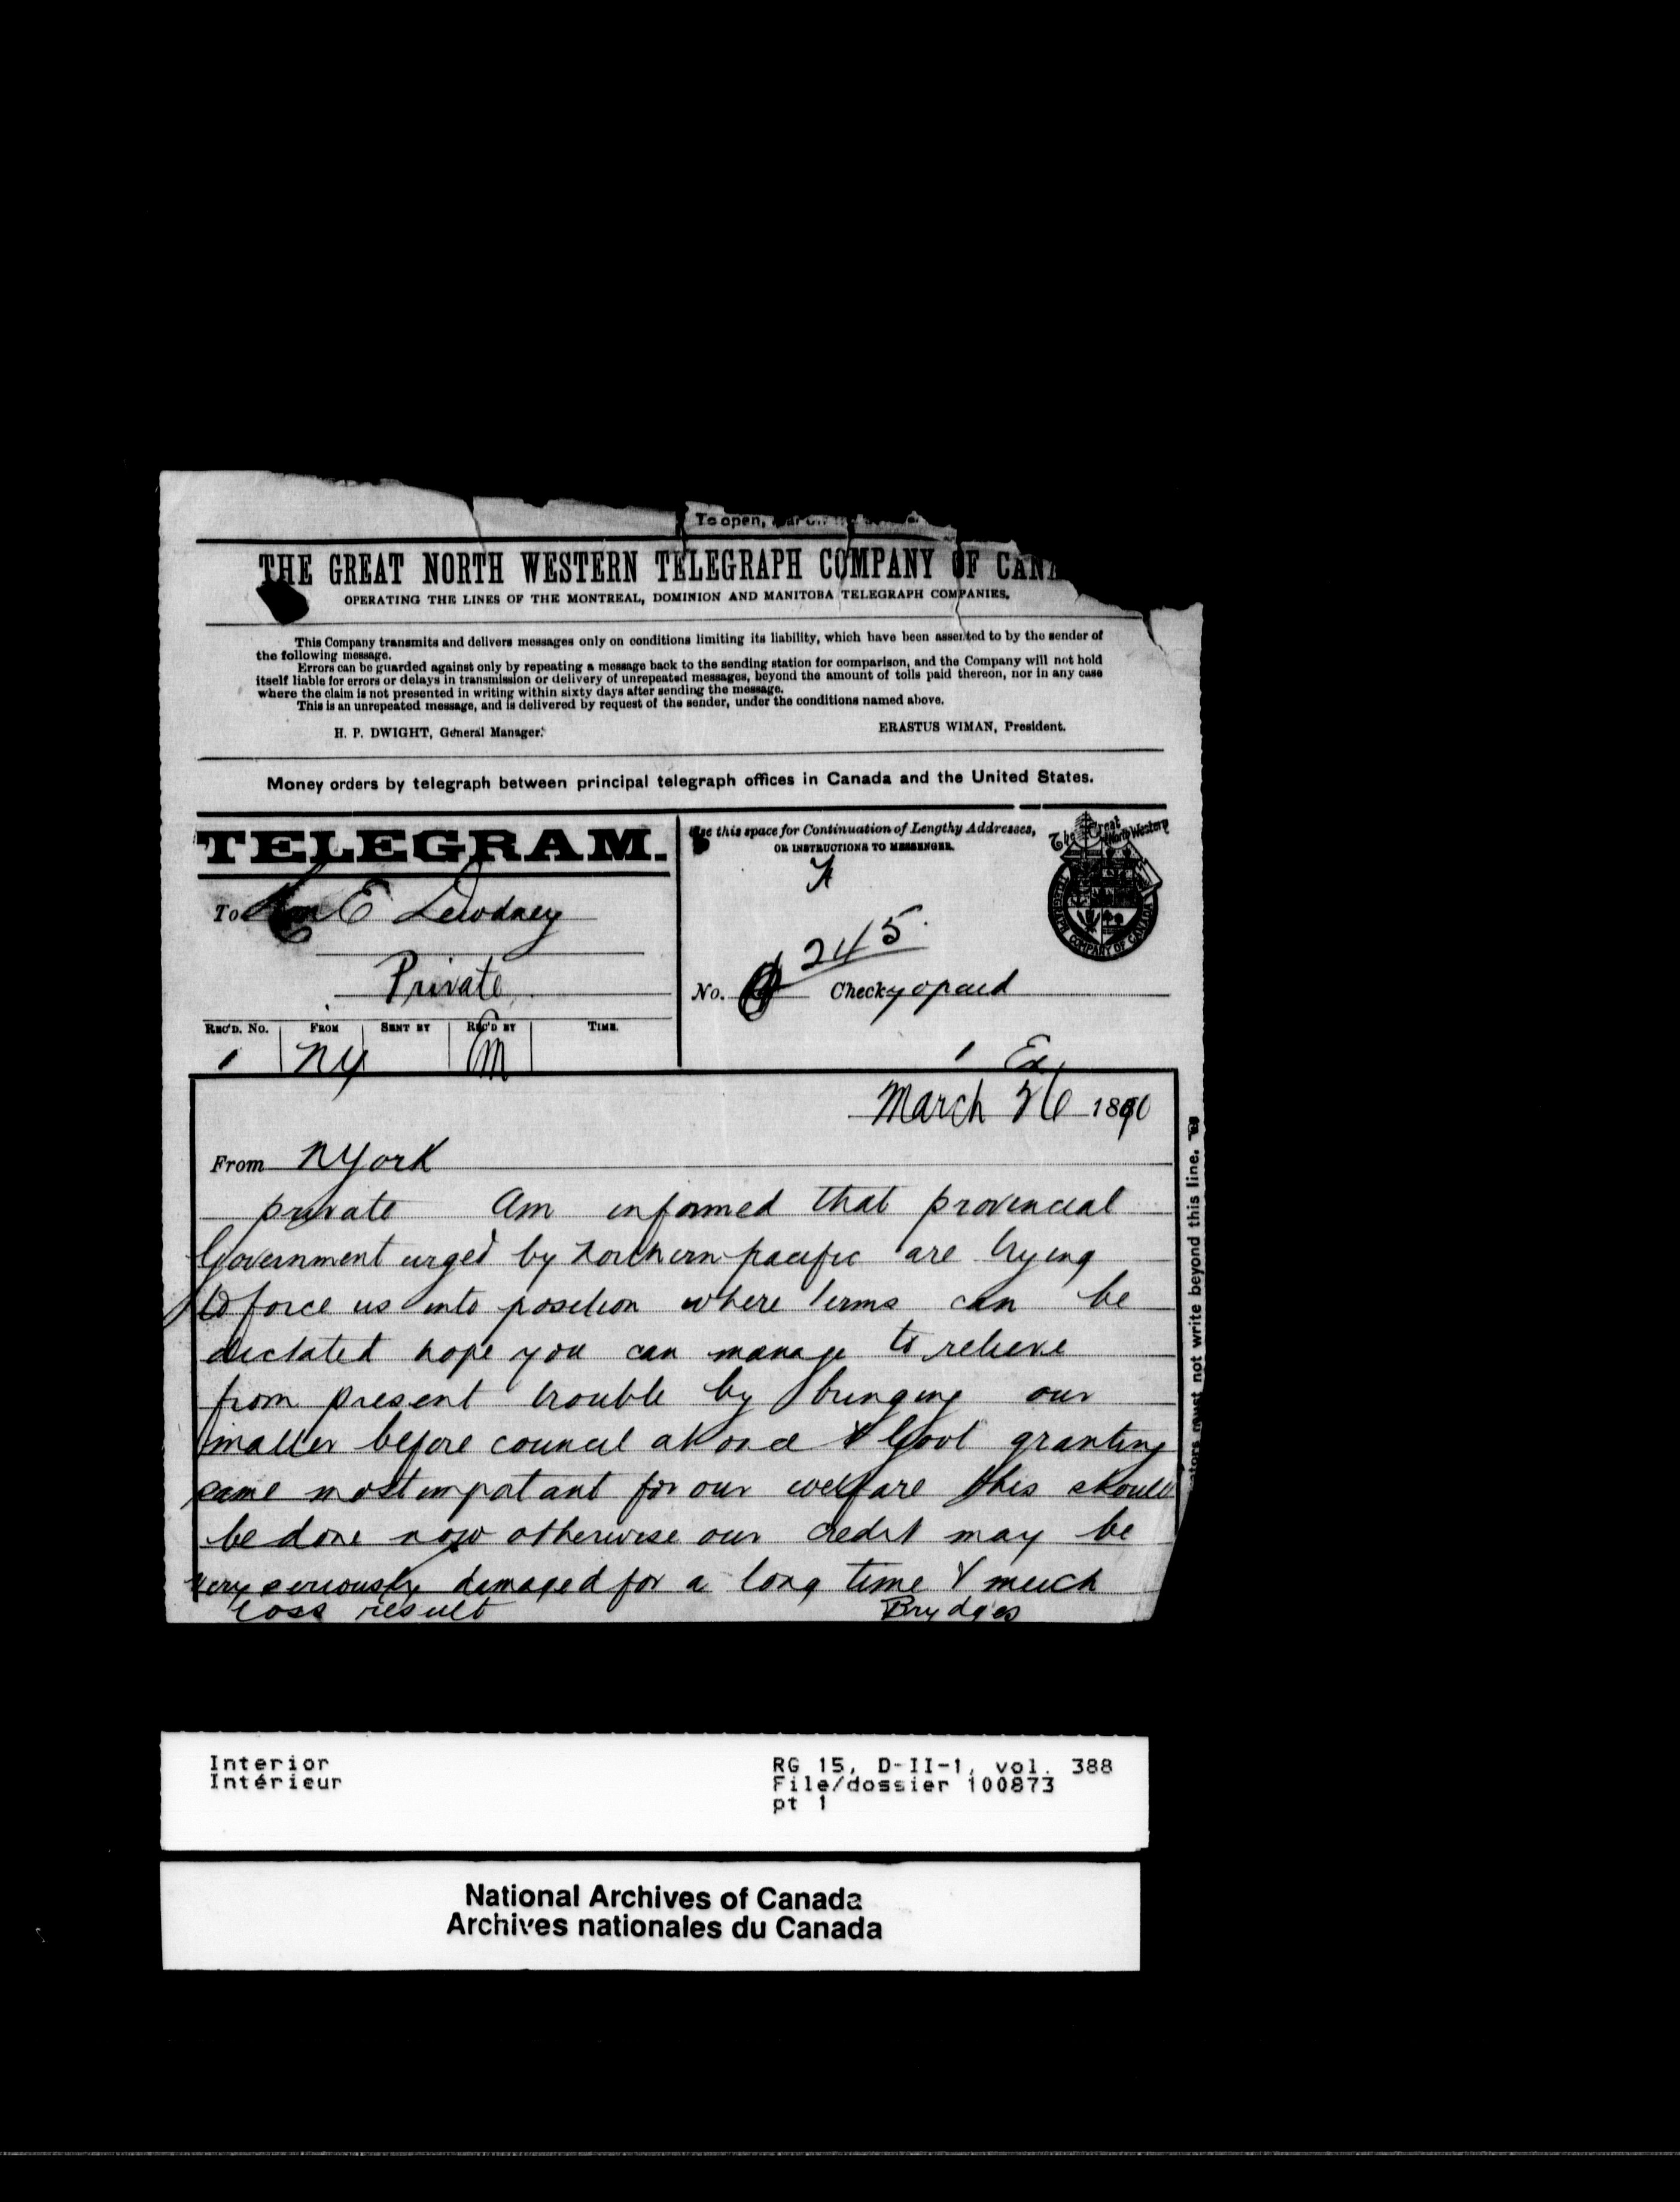 To open,
THE GREAT NORTH WESTERN TELEGRAPH COMPANY OF CANA
OPERATING THE LINES OF THE MONTREAL, DOMINION AND MANITOBA TELEGRAPH COMPANIES.
This Company transmits and delivers messages only on conditions limiting its liability, which have been assented to by the sender of
the following message.
Errors can be guarded against only by repeating a message back to the sending station for comparison, and the Company will not hold
itself liable for errors or delays in transmission or delivery of unrepeated messages, beyond the amount of tolls paid thereon, nor in any case
where the claim is not presented in writing within sixty days after sending the message.
This is an unrepeated message, and is delivered by request of the sender, under the conditions named above.
H. P. DWIGHT, General Manager. ERASTUS WIMAN, President.
Money orders by telegraph between principal telegraph offices in Canada and the United States.
TELEGRAM.
To Hon E Dewdney
Private
REC'D. No. FROM SENT BY REC'D BY TIME.
1 NY
Use this space for Continuation of Lengthy Addresses,
OR INSTRUCTIONS TO MESSENGER.
245
No. Check 70 paid
1 Ex
The Great North Western
TELEGRAPH COMPANY OF CANADA
March 26 1890
From NYork
private Am informed that provincial
Government urged by Northern pacific are trying
to force us into position where terms can be
dictated hope you can manage to relieve
from present trouble by bringing our
matter before council at once & Govt granting
same most impotant for our welfare this should
be done now otherwise our credit may be
very seriously damaged for a long time & much
loss result Brydges
must not write beyond this line.
Interior RG 15, D-II-1, vol. 388
Intérieur File/dossier 100873
pt 1
National Archives of Canada
Archives nationales du Canada